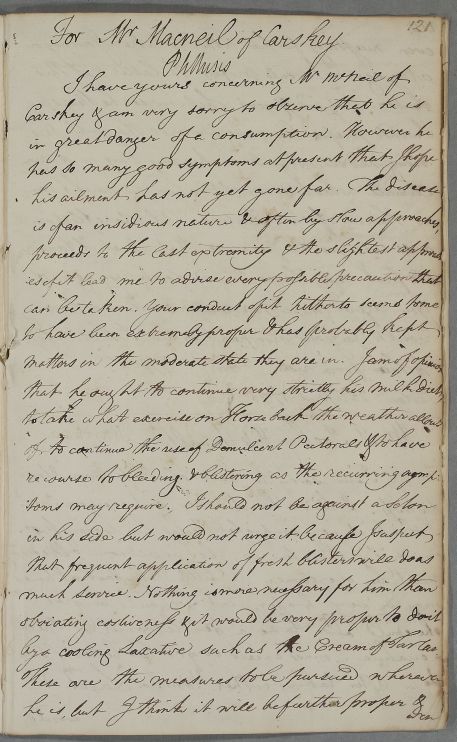 121
For Mr Macneil of Carskey
Phthisis
I have yours concerning Mr McNeil of
Carskey & am very sorry to observe that he is
in great danger of a consumption. However he
has so many good symptoms at present that I hope
his ailment has not yet gone far. The disease
is of an insidious nature & often by slow approaches
proceeds to the last extremity & the slightest approach
es of it lead me to advise every possible precaution that
can be taken. Your conduct of it hitherto seems to me
to have been extremely proper & has probably kept
matters in the moderate state they are in. I am of opinion
that he ought to continue very strictly his milk diet,
to take what exercise on Horse back the weather allows
of, to continue the use of Demulcent Pectorals & to have
recourse to bleeding & blistering as the recurring symp:
toms may require. I should not be against a Seton
in his side but would not urge it because I suspect
that frequent application of fresh blisters will do as
much service. Nothing is more necessary for him than
obviating costiveness & it would be very proper to do it
by a cooling Laxative such as the Cream of Tartar
These are the measures to be pursued wherever
he is, but I think it will be further proper &